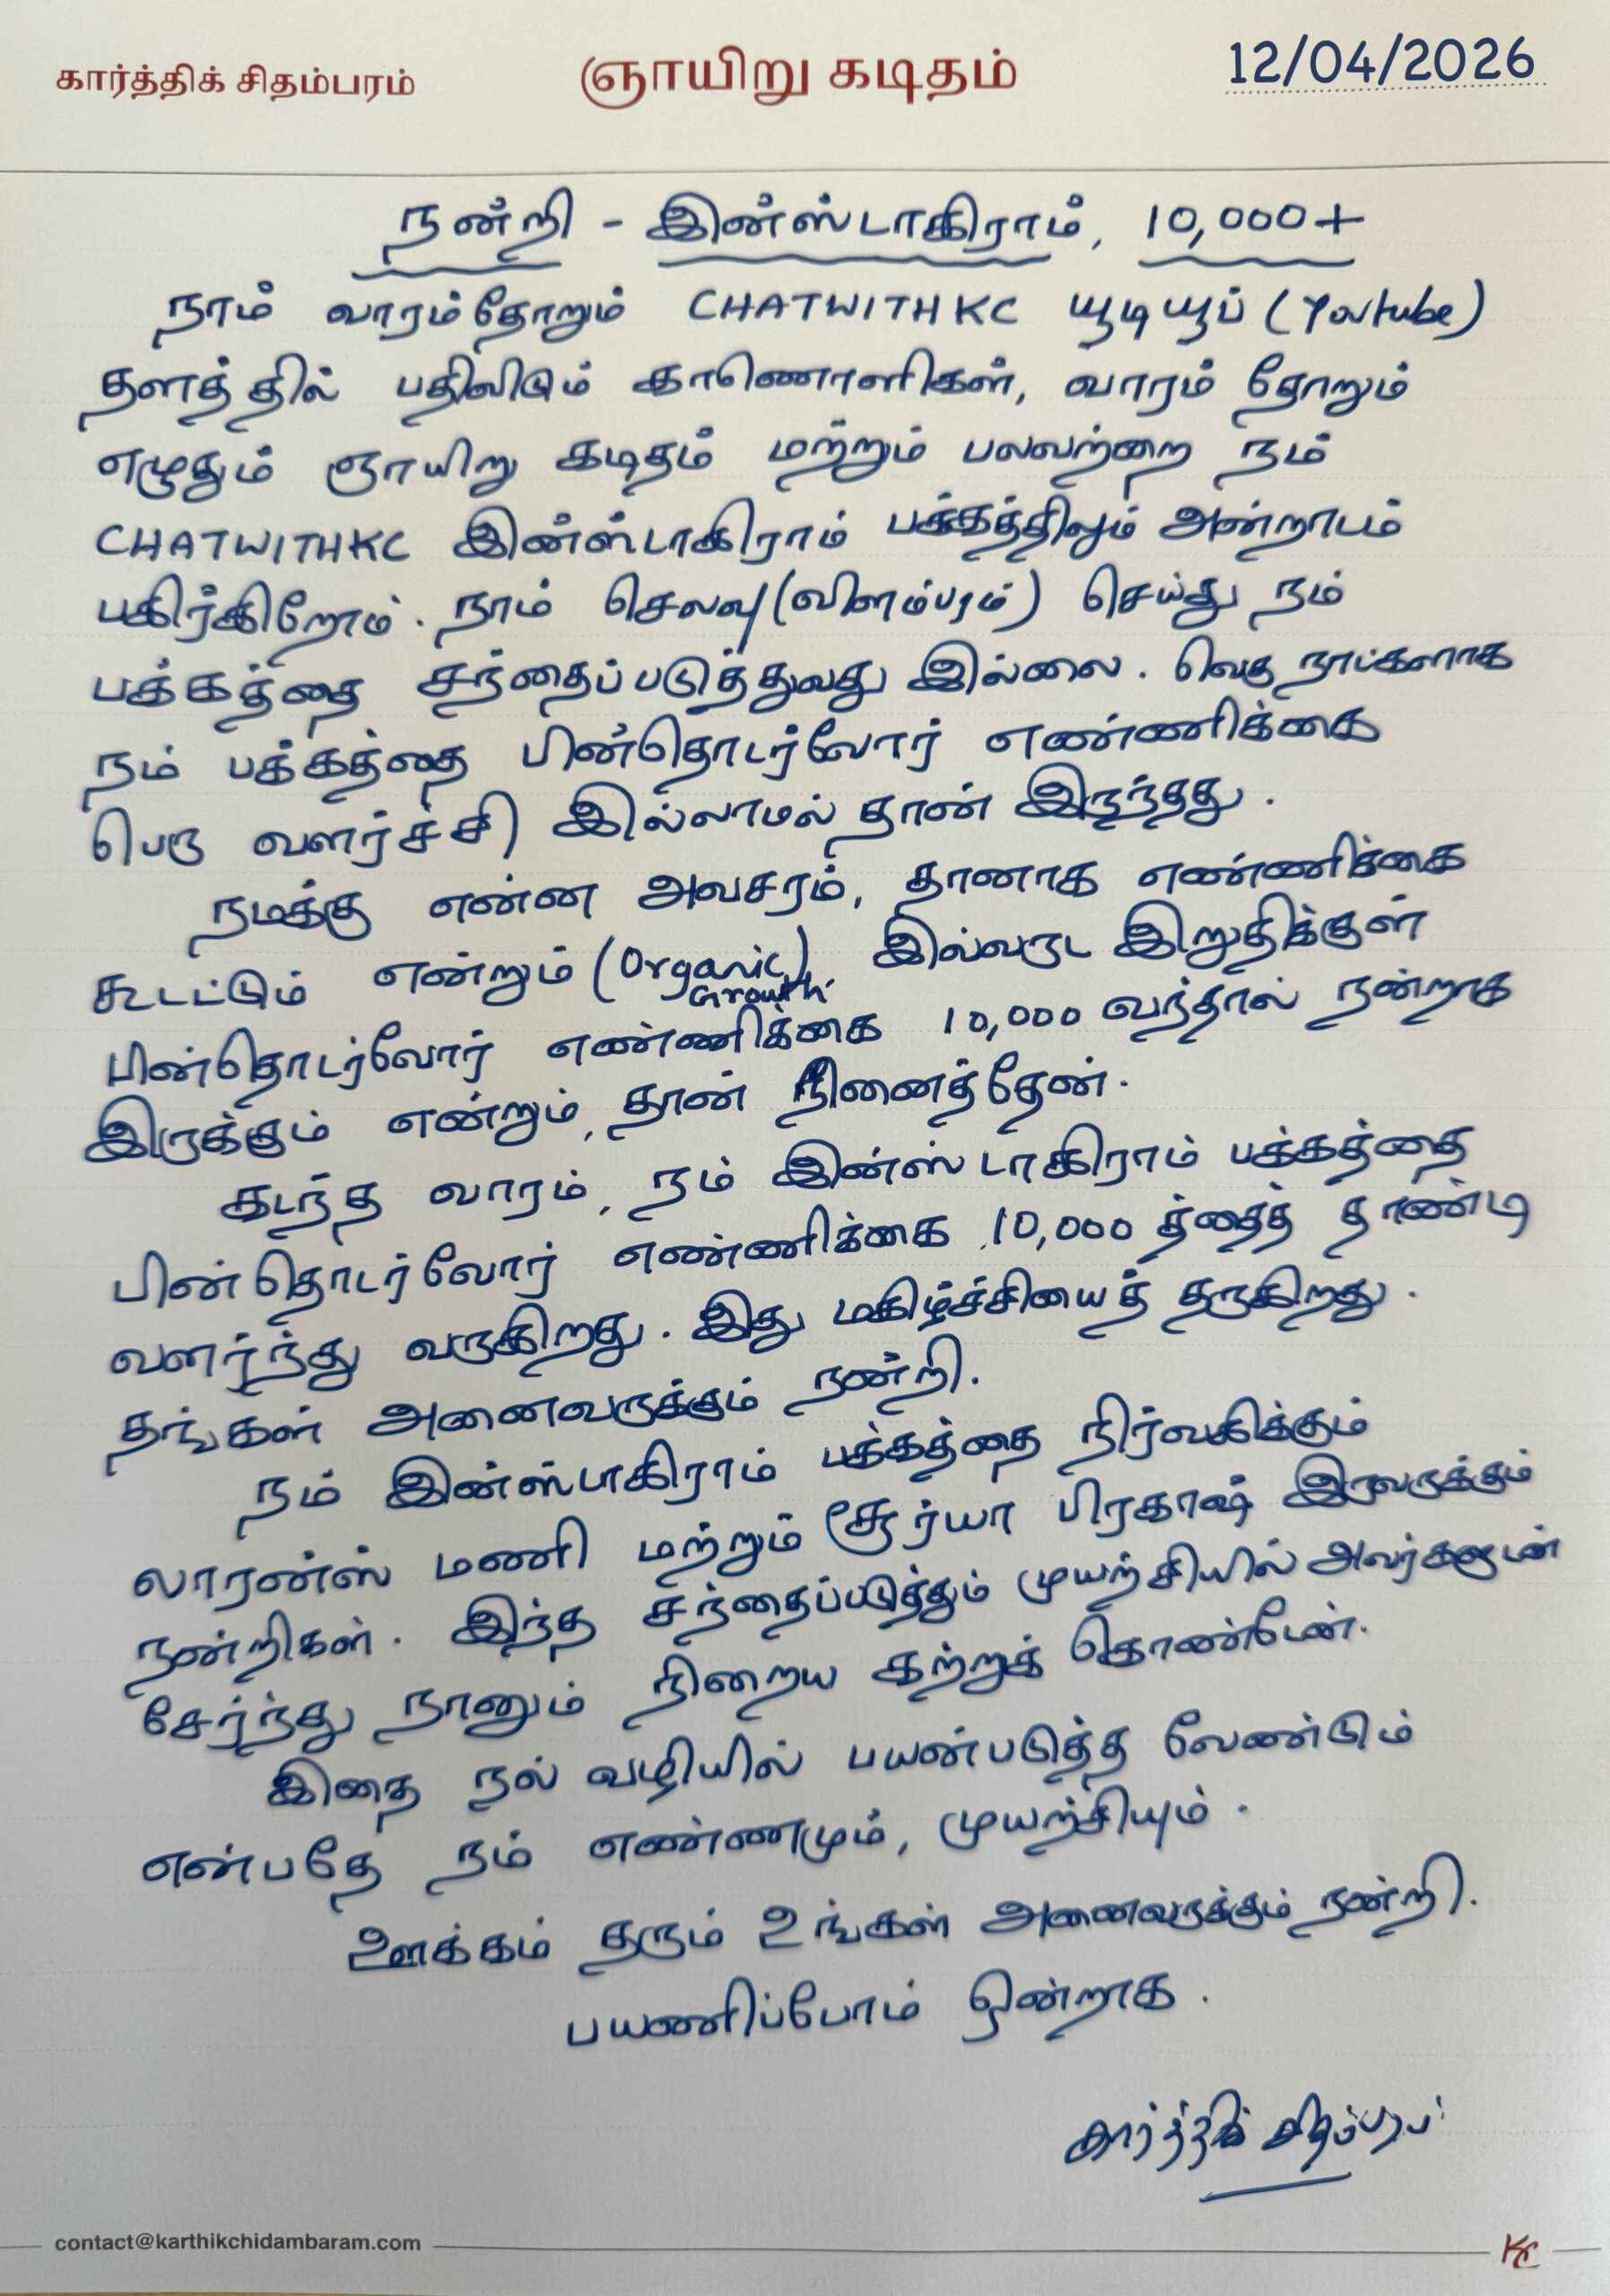 கார்த்திக் சிதம்பரம்
ஞாயிறு கடிதம்
12/04/2026
நன்றி - இன்ஸ்டாகிராம், 10,000+
நாம் வாரம்தோறும் CHATWITHKC யூடியூப் (Youtube)
தளத்தில் பதிவிடும் காணொளிகள், வாரம் தோறும்
எழுதும் ஞாயிறு கடிதம் மற்றும் பலவற்றை நம்
CHATWITHKC இன்ஸ்டாகிராம் பக்கத்திலும் அன்றாடம்
பகிர்கிறோம். நாம் செலவு (விளம்பரம்) செய்து நம்
பக்கத்தை சந்தைப்படுத்துவது இல்லை. வெகு நாட்களாக
நம் பக்கத்தை பின்தொடர்வோர் எண்ணிக்கை
பெரு வளர்ச்சி இல்லாமல் தான் இருந்தது.
நமக்கு என்ன அவசரம், தானாக எண்ணிக்கை
கூடட்டும் என்றும் (Organic Growth) இவ்வருட இறுதிக்குள்
பின்தொடர்வோர் எண்ணிக்கை 10,000 வந்தால் நன்றாக
இருக்கும் என்றும், தான் நினைத்தேன்.
கடந்த வாரம், நம் இன்ஸ்டாகிராம் பக்கத்தை
பின்தொடர்வோர் எண்ணிக்கை 10,000 த்தைத் தாண்டி
வளர்ந்து வருகிறது. இது மகிழ்ச்சியைத் தருகிறது.
தங்கள் அனைவருக்கும் நன்றி.
நம் இன்ஸ்டாகிராம் பக்கத்தை நிர்வகிக்கும்
லாரன்ஸ் மணி மற்றும் சூர்யா பிரகாஷ் இருவருக்கும்
நன்றிகள். இந்த சந்தைப்படுத்தும் முயற்சியில் அவர்களுடன்
சேர்ந்து நானும் நிறைய கற்றுக் கொண்டேன்.
இதை நல் வழியில் பயன்படுத்த வேண்டும்
என்பதே நம் எண்ணமும், முயற்சியும்.
ஊக்கம் தரும் உங்கள் அனைவருக்கும் நன்றி.
பயணிப்போம் ஒன்றாக.
கார்த்திக் சிதம்பரம்
contact@karthikchidambaram.com
KC